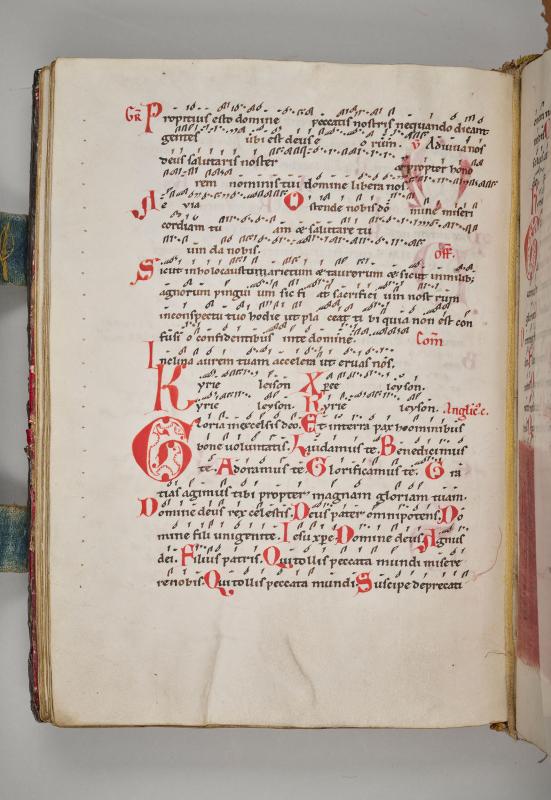 GR Propitius esto domine peccatis nostris nequando dicant
gentes ubi est deus eorum. V Adiuva nos
deus salutaris noster et propter hono
rem nominis tui domine libera nos.
Ae via Ostende nobis dō mine miseri
cordiam tuam et salutare tu
um da nobis. Off.
Sicut in holocaustum arietum et taurorum et sicut in milib;
agnorum pinguium sic fiat sacrificium nostrum
in conspectu tuo hodie ut placeat tibi quia non est con
fusio confidentibus in te domine. Com
Inclina aurem tuam accelera ut eruas nos.
Kyrie leison Xpee leyson.
Kyrie leyson. Kyrie leyson.
Gloria in excelsis deo. Et in terra pax hominibus
bone voluntatis. Laudamus te. Benedicimus
te. Adoramus te. Glorificamus te. Gra
tias agimus tibi propter magnam gloriam tuam.
Domine deus rex celestis. Deus pater omnipotens. Do
mine fili unigenite. Iesu xpe. Domine deus. Agnus
dei. Filius patris. Qui tollis peccata mundi misere
re nobis. Qui tollis peccata mundi. Suscipe deprecati